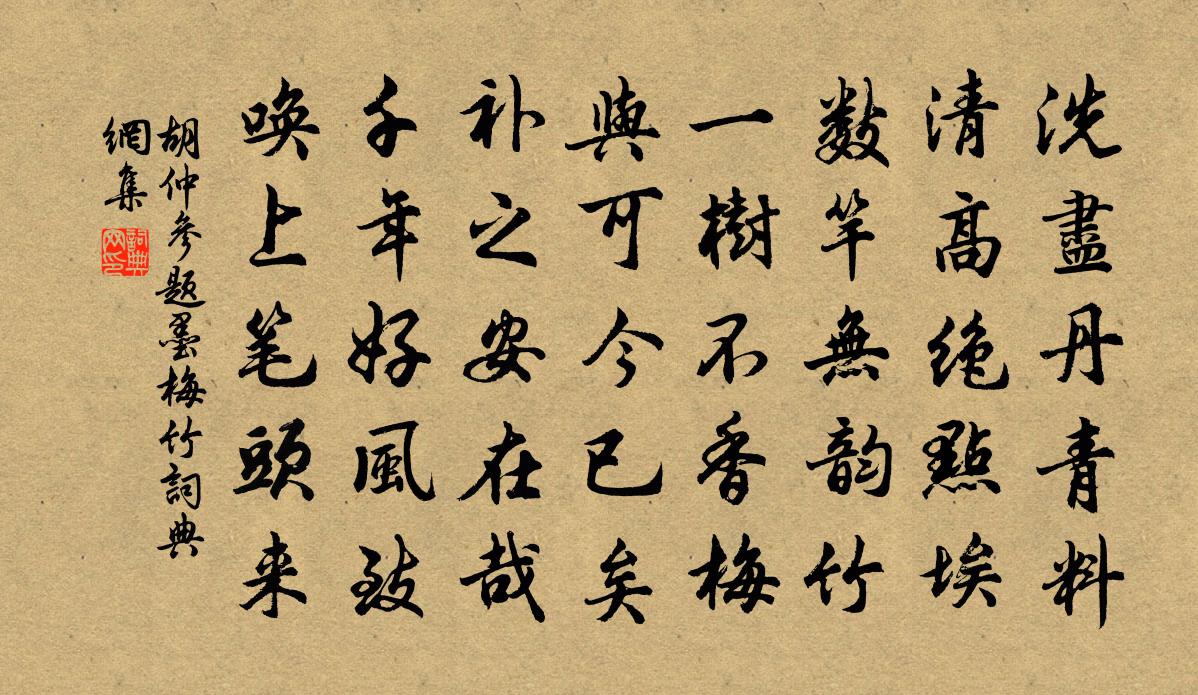 洗盡丹青料
清高絶點埃
數竿無韵竹
一樹不香梅
與可今已矣
补之安在哉
千年好風致
喚上笔頭来
胡仲參题墨梅竹詞典
網集
詞典
网印